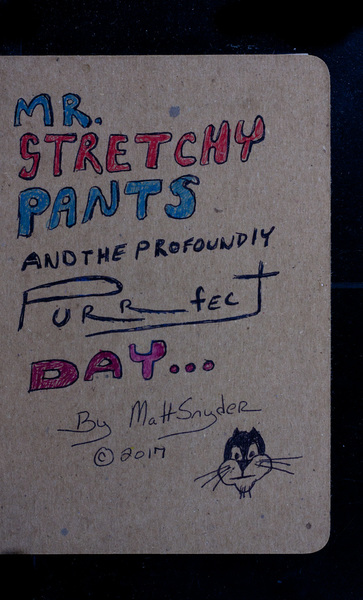 MR.
STRETCHY
PANTS
AND THE PROFOUNDLY
PURRfecT
DAY...
By Matt Snyder
© 2017